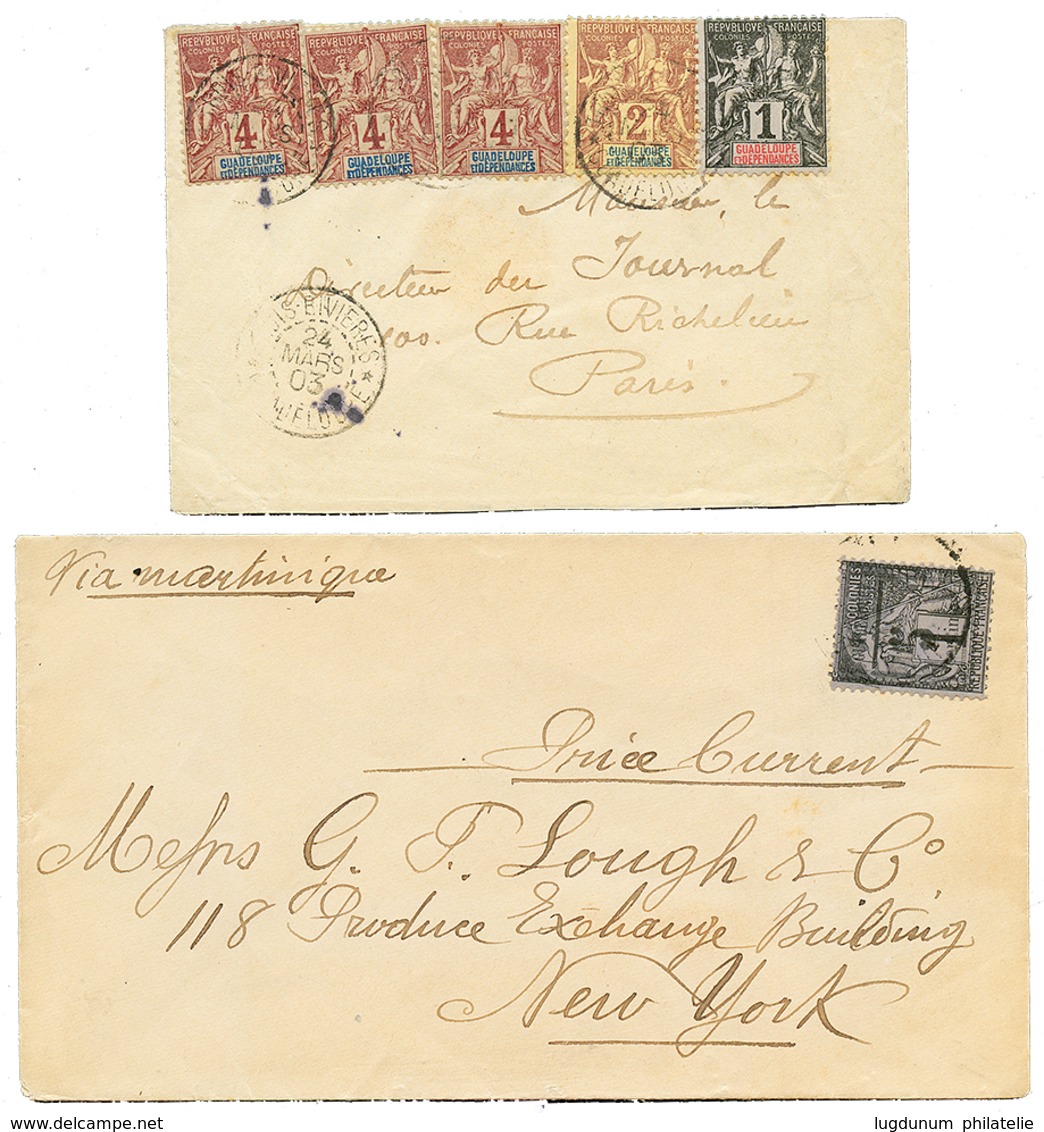 REPVBLIQVE FRANÇAISE REPVBLIQVE FRANÇAISE REPVBLIQVE FRANÇAISE REPVBLIQVE FRANÇAISE REPVBLIQVE FRANÇAISE
COLONIES POSTES COLONIES POSTES COLONIES POSTES COLONIES POSTES COLONIES POSTES
4 4 4 2 1
GUADELOUPE GUADELOUPE GUADELOUPE GUADELOUPE GUADELOUPE
ET DÉPENDANCES ET DÉPENDANCES ET DÉPENDANCES ET DÉPENDANCES ET DÉPENDANCES
Monsieur le
Directeur du Journal
100. Rue Richelieu
Paris.
24
MARS
03
Via martinique
COLONIES
POSTES
REPUBLIQUE FRANÇAISE
Price Current
Messrs G. F. Lough & Co
118 Produce Exchange Building
New York
delcampe.net
lugdunum philatelie